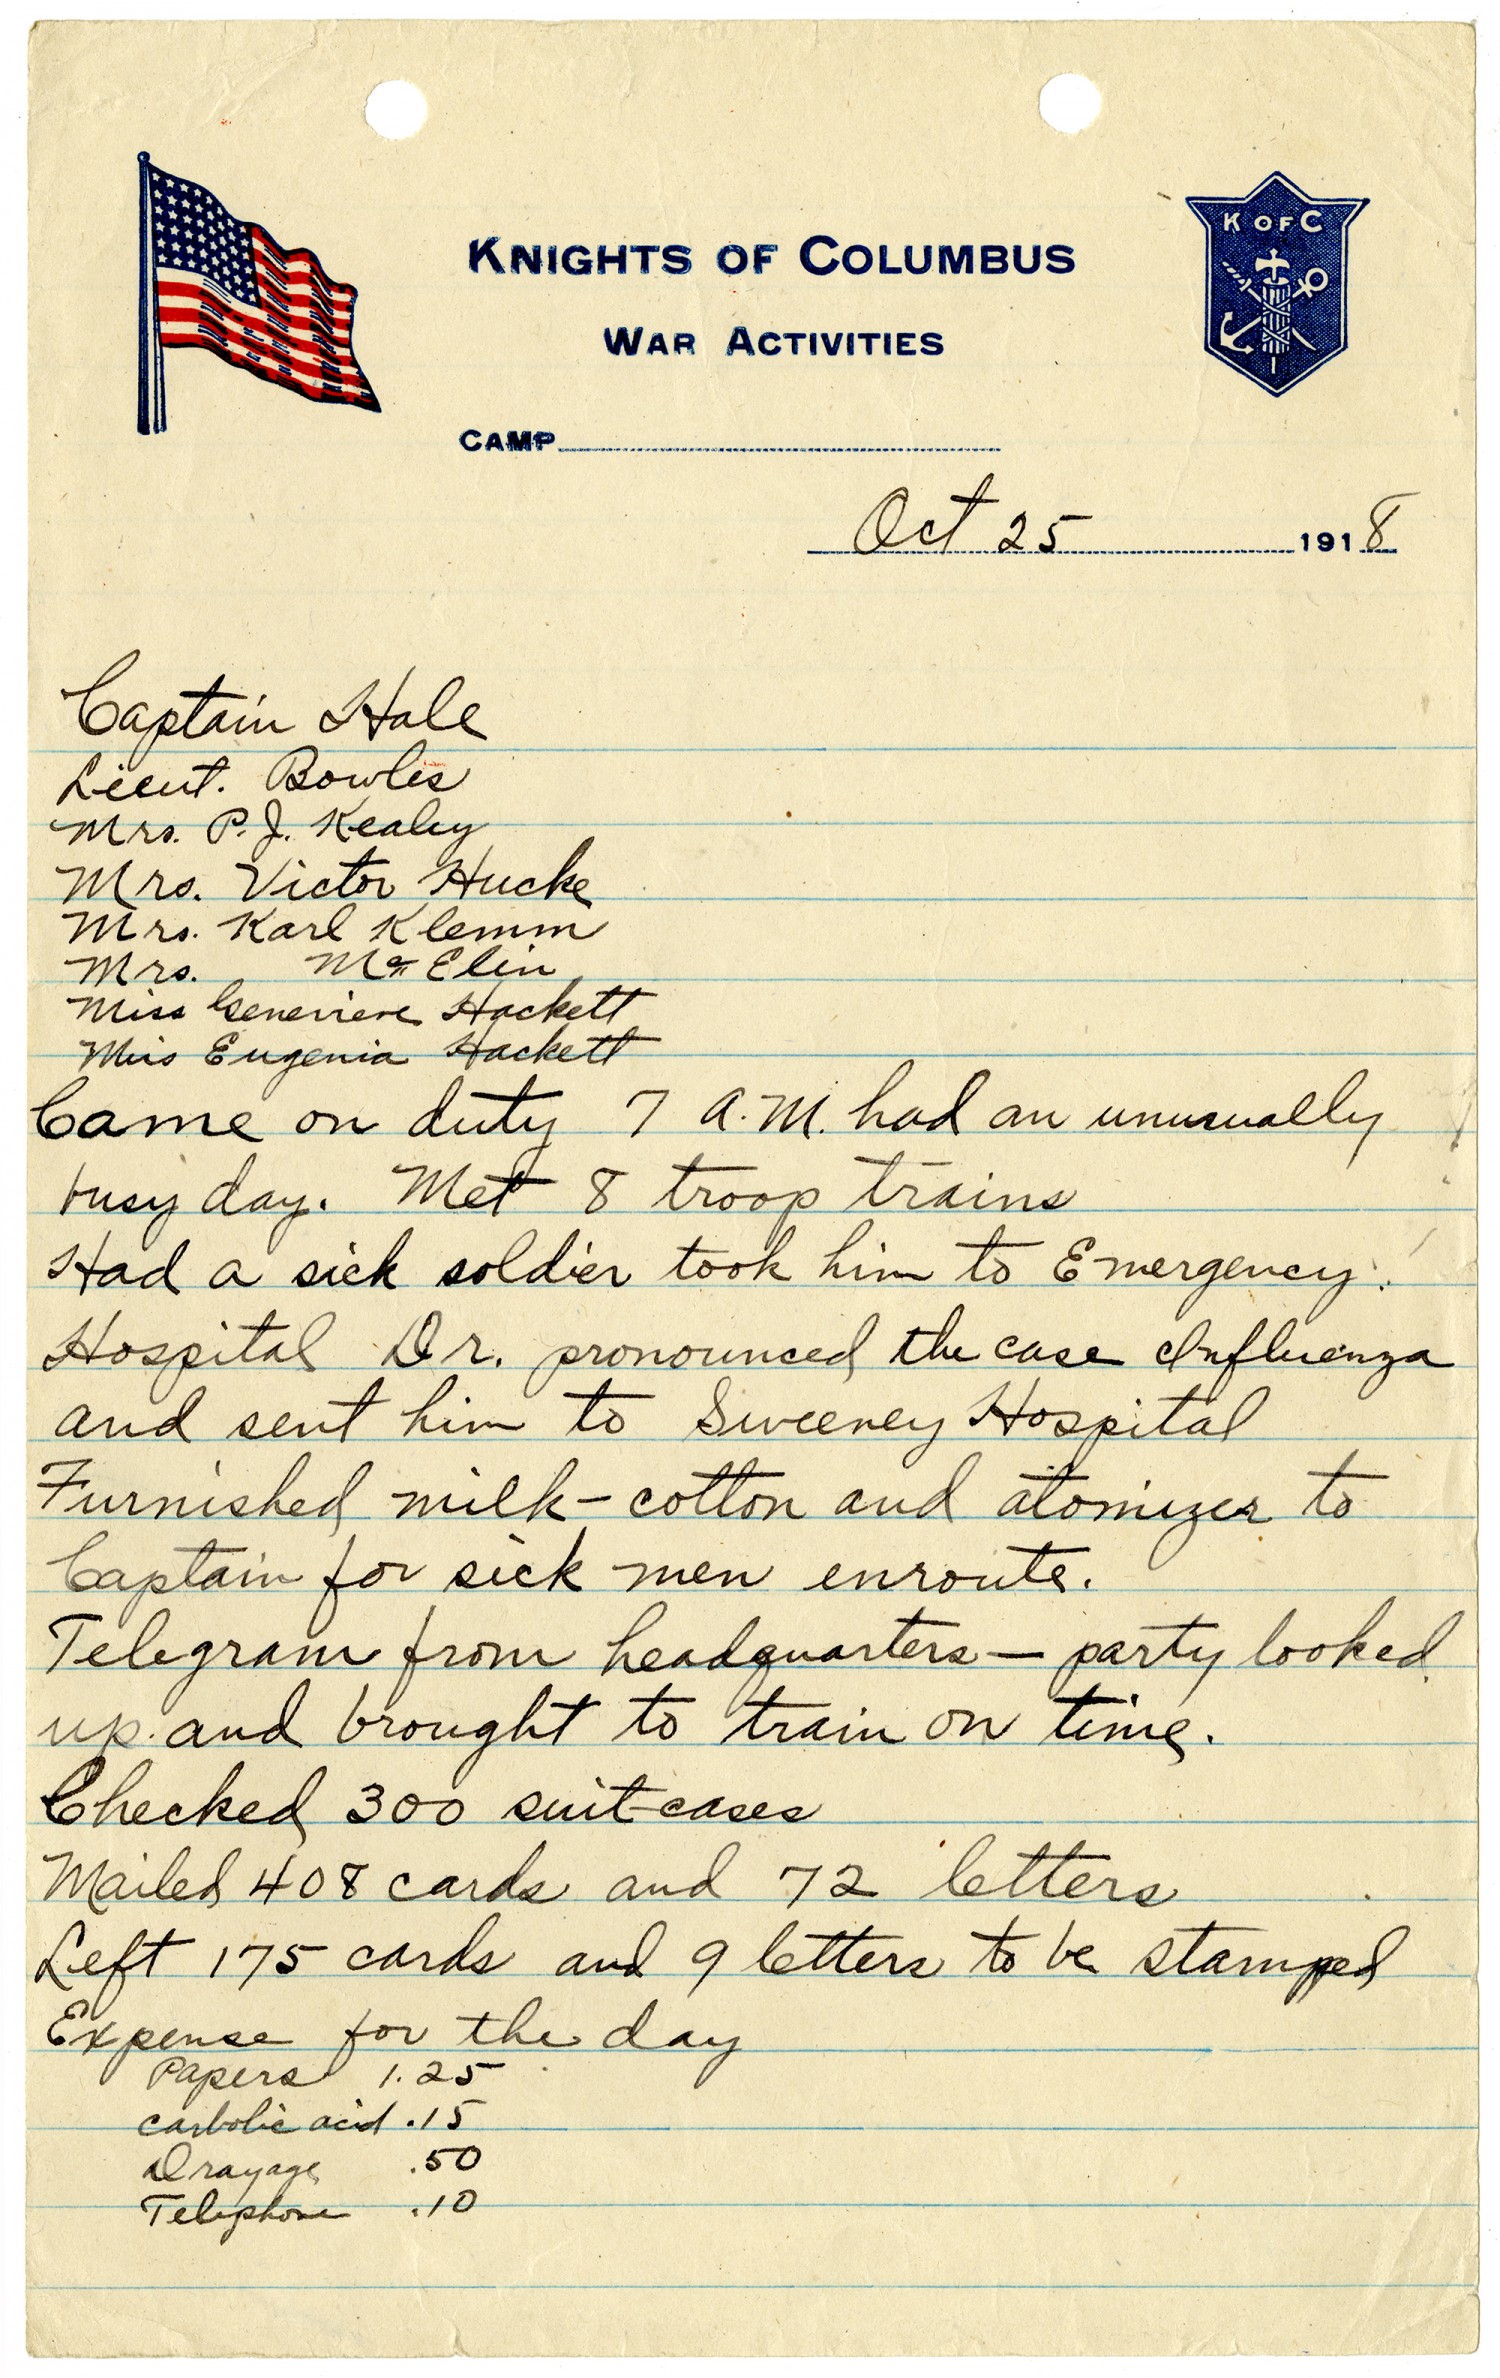 K OF C
KNIGHTS OF COLUMBUS
WAR ACTIVITIES
CAMP
Oct 25 1918
Captain Hale
Lieut. Bowles
Mrs. P. J. Kealey
Mrs. Victor Hucke
Mrs. Karl Klemm
Mrs. McElin
Miss Genevieve Hackett
Miss Eugenia Hackett
Came on duty 7 A.M. had an unusually
busy day. Met 8 troop trains
Had a sick soldier took him to Emergency
Hospital Dr. pronounced the case Influenza
and sent him to Sweeney Hospital
Furnished milk - cotton and atomizer to
Captain for sick men enroute.
Telegram from headquarters — party looked
up and brought to train on time.
Checked 300 suit-cases
Mailed 408 cards and 72 letters
Left 175 cards and 9 letters to be stamped
Expense for the day
Papers 1.25
carbolic acid .15
Drayage .50
Telephone .10